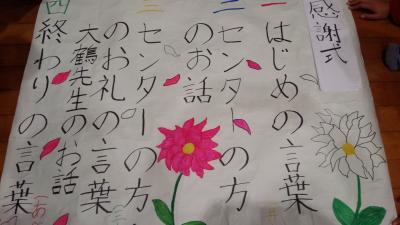 感謝式
一 はじめの言葉
二 センターの方
のお話
三 センターの方
のお礼の言葉
大鶴先生のお話
四 終わりの言葉